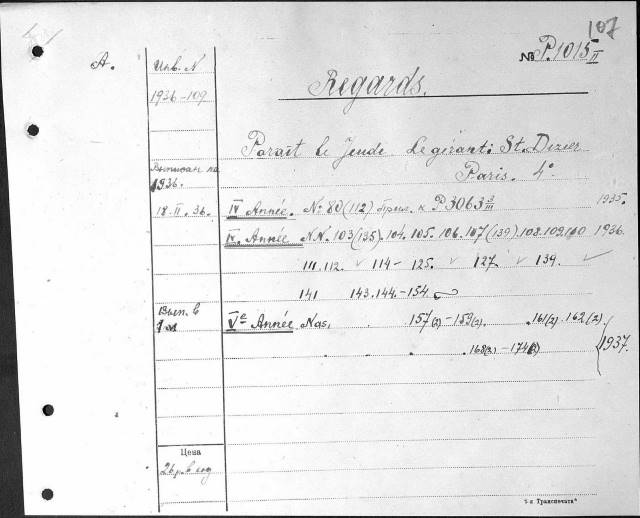 107
№ P.1015/II
A.
Инв. N
1936-109
Regards.
Paraît le Jeudi Le gérant: St. Dizier
Paris. 4°
Выписан на
1936.
18.II.36.
IV Année. No 80(112) прил. к P3063 3/III 1935.
IV. Année N.N. 103(135). 104. 105. 106. 107(139). 108. 109. 110 1936.
111. 112. ✓ 114 - 125. ✓ 127. ✓ 139. ✓
141 143. 144. - 154.
Вып. в
Ve Année Nos. 157(2) - 159(2). 161(2). 162(2)
168(2) - 174(2) 1937.
Цена
26 р. в год
„5-я Транспечать“